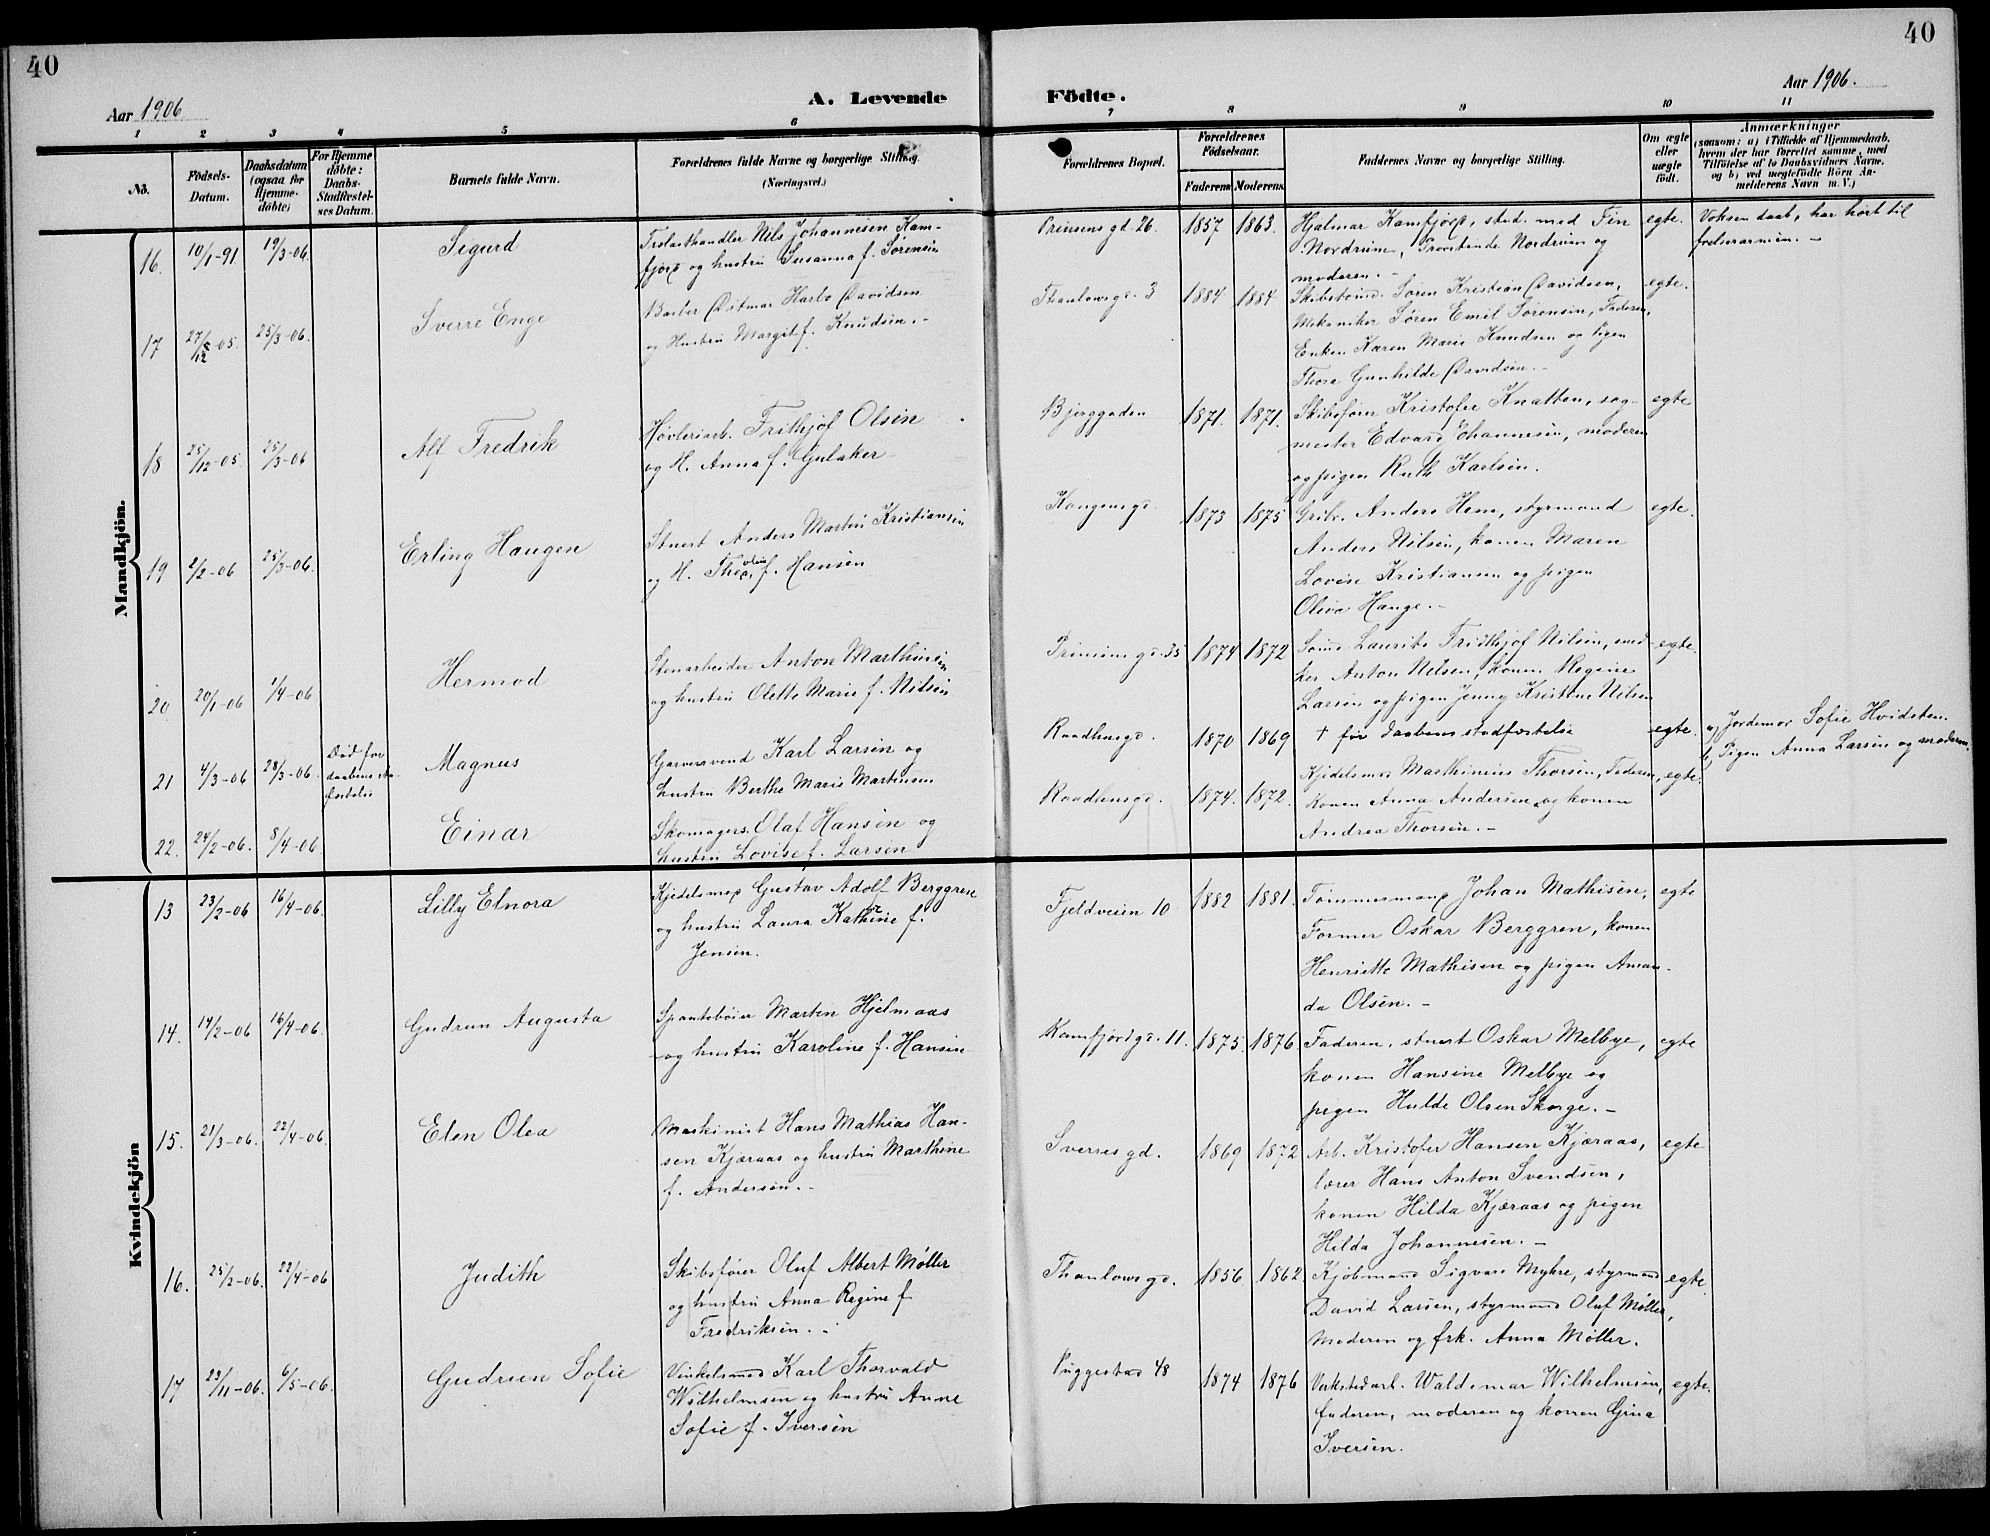 40
40
Aar 1906.
A. Levende
Födte.
Aar 1906.
1 2 3 4 5 6 7 8 9 10 11
No.
Födsels-
Datum.
Daabsdatum
(ogsaa for
Hjemme-
döbte)
For Hjemme
döbte:
Daabs-
Stadfæstel-
ses Datum.
Barnets fulde Navn.
Forældrenes fulde Navne og borgerlige Stilling.
(Næringsvei.)
Forældrenes Bopæl.
Forældrenes
Födselsaar.
Faderens Moderens
Faddernes Navne og borgerlige Stilling.
Om ægte
eller
uægte
født.
Anmærkninger
(saasom: a) i Tilfælde af Hjemmedaab,
hvem der har forrettet samme, med
Tilföielse af to Daabsvidners Navne.
og b) ved uægtefödte Börn An-
melderens Navn m. V.)
Mandkjön.
16. 10/1-91 19/3-06.
Sigurd
Trælasthandler Nils Johannesen Kam-
fjord og hustru Susanna f. Sørensen
Prinsensgd. 26.
1857 1863.
Hjalmar Kamfjord, stud. med Fin
Nordrum, Provstinde Nordrum og
moderen. -
egte.
Voksen daab, har hørt til
frelsesarmeen. -
17 27/12-05. 25/3-06.
Sverre Enge
Barber Ditmar Harbo Davidsen
og Hustru Margit f. Knudsen. -
Thaulowsgd. 3
1884 1884
Skibstømd. Søren Kristian Davidsen,
Mekaniker Søren Emil Sørensen, Faderen,
Enken Karen Marie Knudsen og Pigen
Thora Gunhilde Davidsen. -
egte.
18 25/12-05. 25/3-06
Alf Fredrik
Høvleriarb. Frithjof Olsen
og H. Anna f. Gulaker
Bjerggaden
1871. 1871.
Skibsfører Kristofer Knatten, sag-
mester Edvard Johannesen, moderen
og pigen Ruth Karlsen.
egte
19 2/2-06 25/3-06.
Erling Haugen
Stuert Anders Martin Kristiansen
og H. Theoline, f. Hansen
Kongensgd.
1873 1875
Gribv. Anders Hem, styrmand
Anders Nilsen, konen Maren
Lovise Kristiansen og pigen
Oliva Hauge. -
egte.
20 20/1-06 1/4-06
Hermod
Stenarbeider Anton Marthinsen
og hustru Olette Marie f. Nilsen
Prinsensgd. 35
1874 1872
Sømd. Laurits Fridthjof Nilsen, sned-
ker Anton Nilsen, konen Regine
Larsen og pigen Jenny Kristine Nilsen
egte.
21 4/3-06 28/3-06.
Død før
daabens sta-
fæstelse
Magnus
Garversvend Karl Larsen og
hustru Berthe Marie Martinsen
Raadhusgd.
1870 1869
+ før daabens stadfæstelse
egte.
a) Jordemor Sofie Hvidsten.
b) Pigen Anna Larsen og moderen.
22. 24/2-06. 8/4-06.
Einar
Skomagers. Olaf Hansen og
hustru Lovise f. Larsen
Raadhusgd.
1874. 1872.
Kjedelsmed Marthinius Thorsen, Faderen,
Konen Anna Andersen og konen
Andrea Thorsen. -
egte.
Kvindekjön
13 23/2-06 16/4-06.
Lilly Elnora
Kjedelsmed Gustav Adolf Berggren
og hustru Laura Kathrine f.
Jensen.
Fjeldveien 10
1882 1881.
Tømmermand Johan Mathisen,
Former Oskar Berggren, konen
Henriette Mathisen og pigen Aman-
da Olsen. -
egte
14. 14/2-06 16/4-06.
Gudrun Augusta
Martin Hjelmaas
og hustru Karoline f. Hansen
Kamfjordgd. 11.
1875. 1876.
Faderen, stuert Oskar Melbye,
konen Hansine Melbye og
pigen Hulde Olsen Skorge. -
egte
15. 21/3-06. 22/4-06.
Elen Olea
Maskinist Hans Mathias Han-
sen Kjæraas og hustru Marthine
f. Andersen. -
Sverresgd.
1869 1872
Arb. Kristofer Hansen Kjæraas,
lærer Hans Anton Svendsen,
konen Hilda Kjæraas og pigen
Hilda Johannesen. -
egte
16. 25/2-06. 22/4-06
Judith
Skibsfører Oluf Albert Møller
og hustru Anna Regine f
Fredriksen. -
Thaulowsgd.
1856. 1862
Kjøbmand Sigvard Myhre, styrmand
David Larsen, styrmand Oluf Møller,
Moderen og frk. Anna Møller.
egte
17 23/11-06. 6/5-06.
Gudrun Sofie
Karl Thorvald
Wilhelmsen og hustru Anne
Sofie f. Iversen
Puggestad 48
1874 1876
Verkstedarb. Waldemar Wilhelmsen,
faderen, moderen og konen Gina
Iversen.
egte.